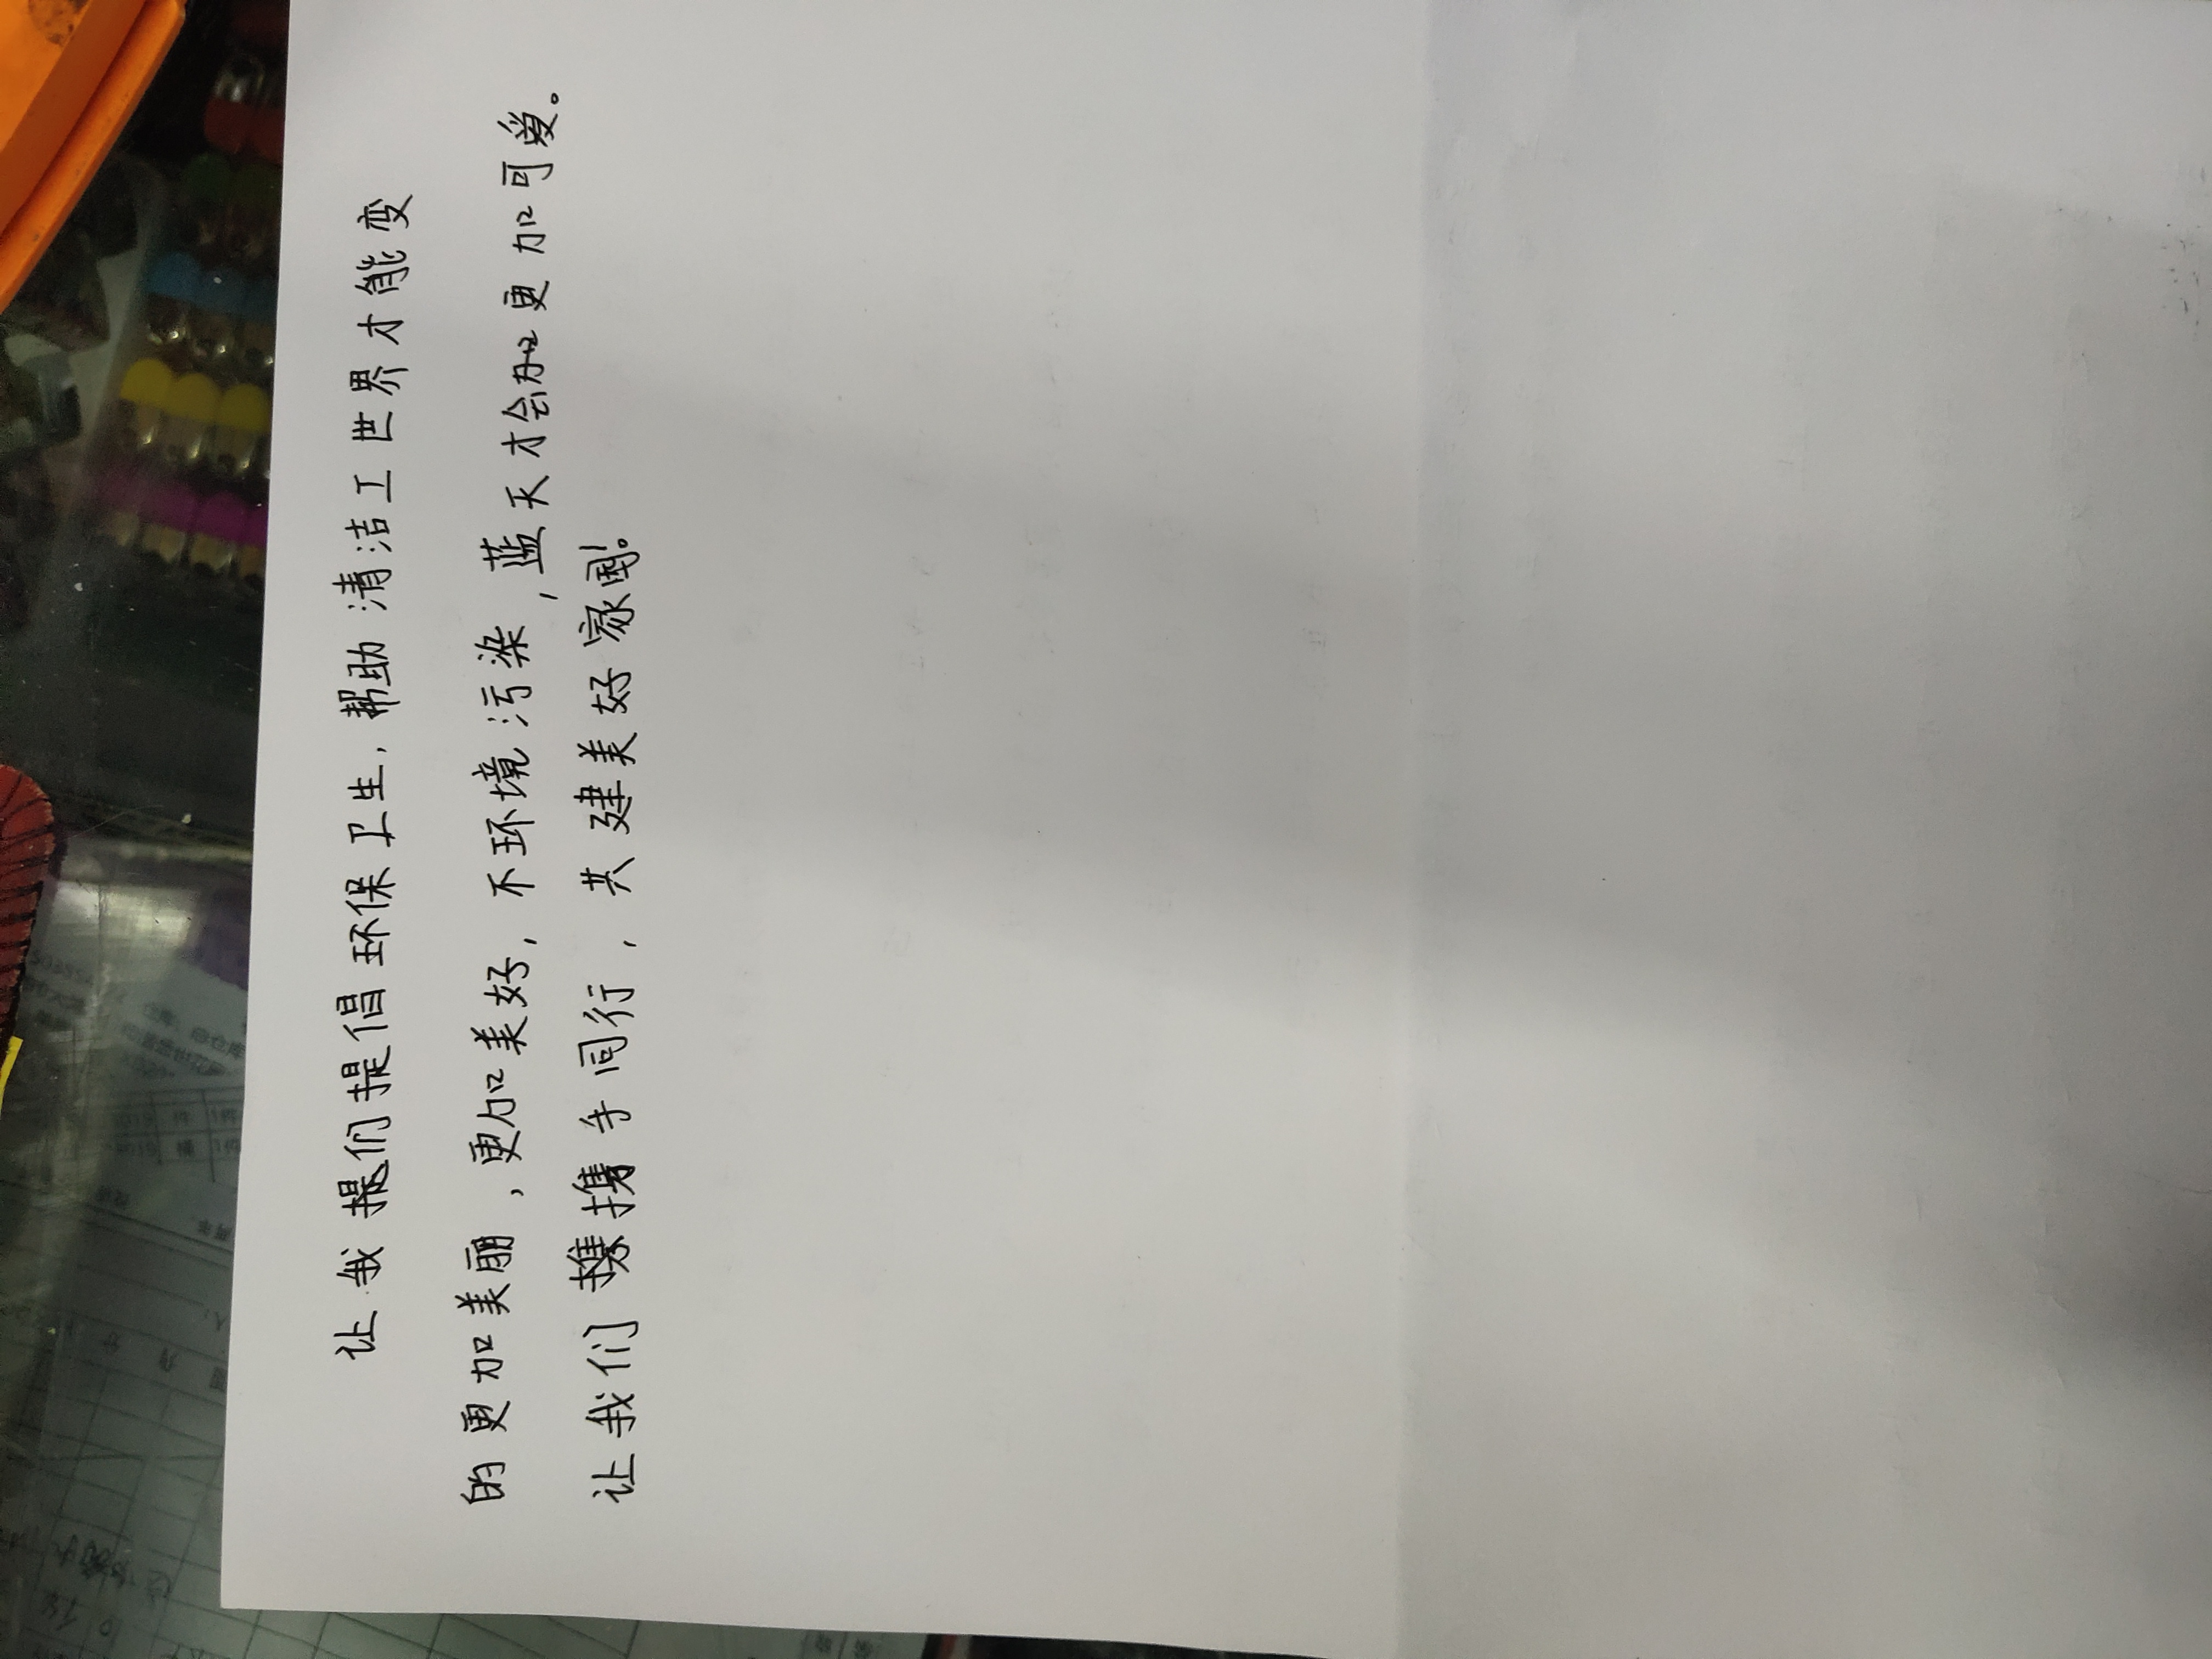 让我们提倡环保卫生，帮助清洁工世界才能变
的更加美丽，更加美好，不环境污染，蓝天才会更加可爱。
让我们携手同行，共建美好家园。